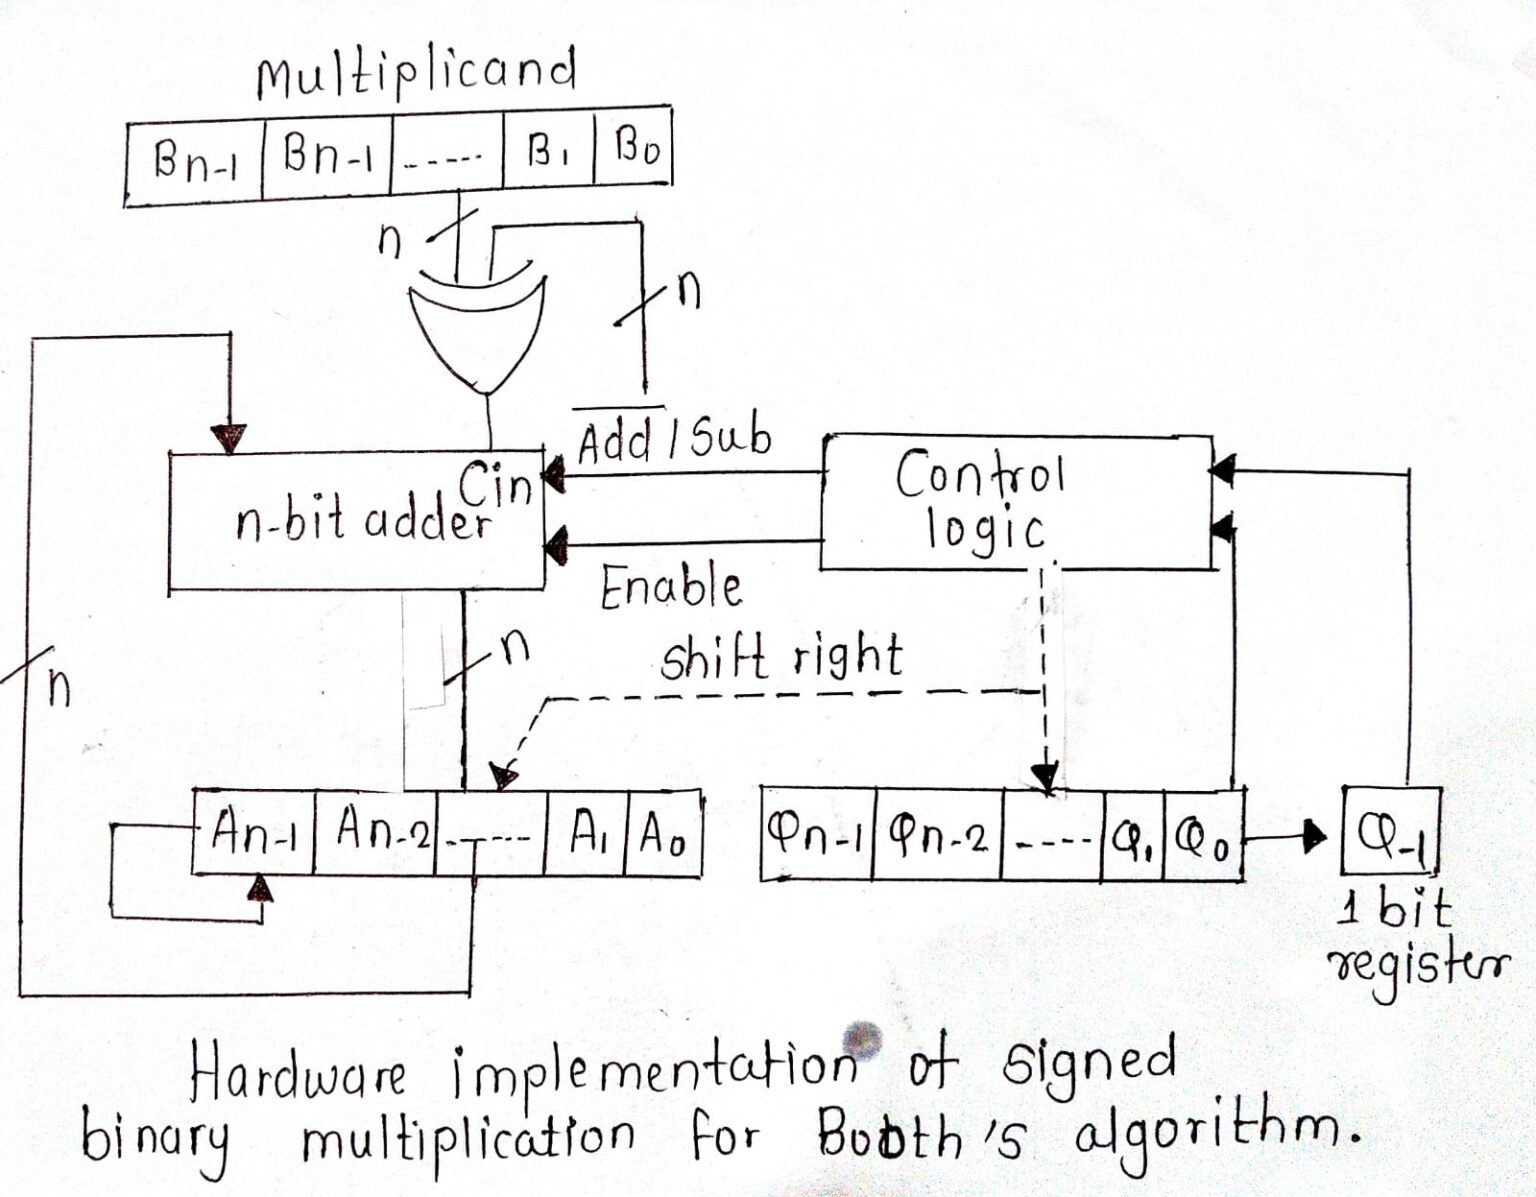 Multiplicand
Bn-1 Bn-1 ----- B1 B0
n
n
Add / Sub
Cin
n-bit adder
Control
logic
Enable
n
shift right
n
An-1 An-2 ----- A1 A0
Qn-1 Qn-2 ---- Q1 Q0
Q-1
1 bit
register
Hardware implementation of signed
binary multiplication for Booth's algorithm.